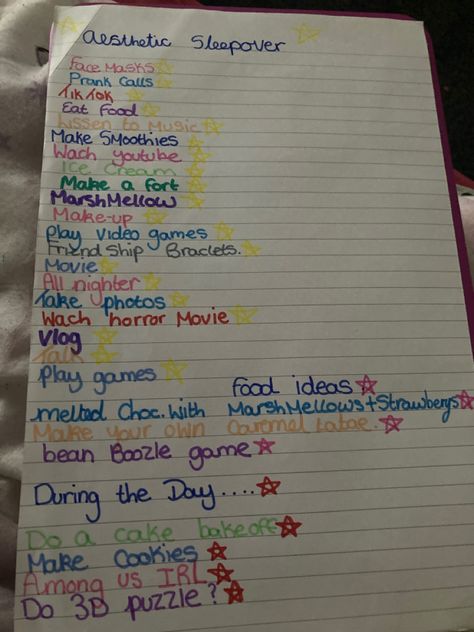 aesthetic Sleepover
Face Masks
Prank Calls
TikTok
Eat Food
Lissen to Music
Make Smoothies
Wach youtube
Ice Cream
Make a fort
MarshMellow
Make-up
play video games
Friend Ship Braclets.
Movie
All nighter
Take photos
Wach horror Movie
Vlog
Talk
play games
food ideas
melted Choc. With MarshMellows + Strawberys
Make your own Caremel Latae.
bean Boozle game
During the Day....
Do a cake bakeoff
Make Cookies
Among us IRL
Do 3D puzzle?